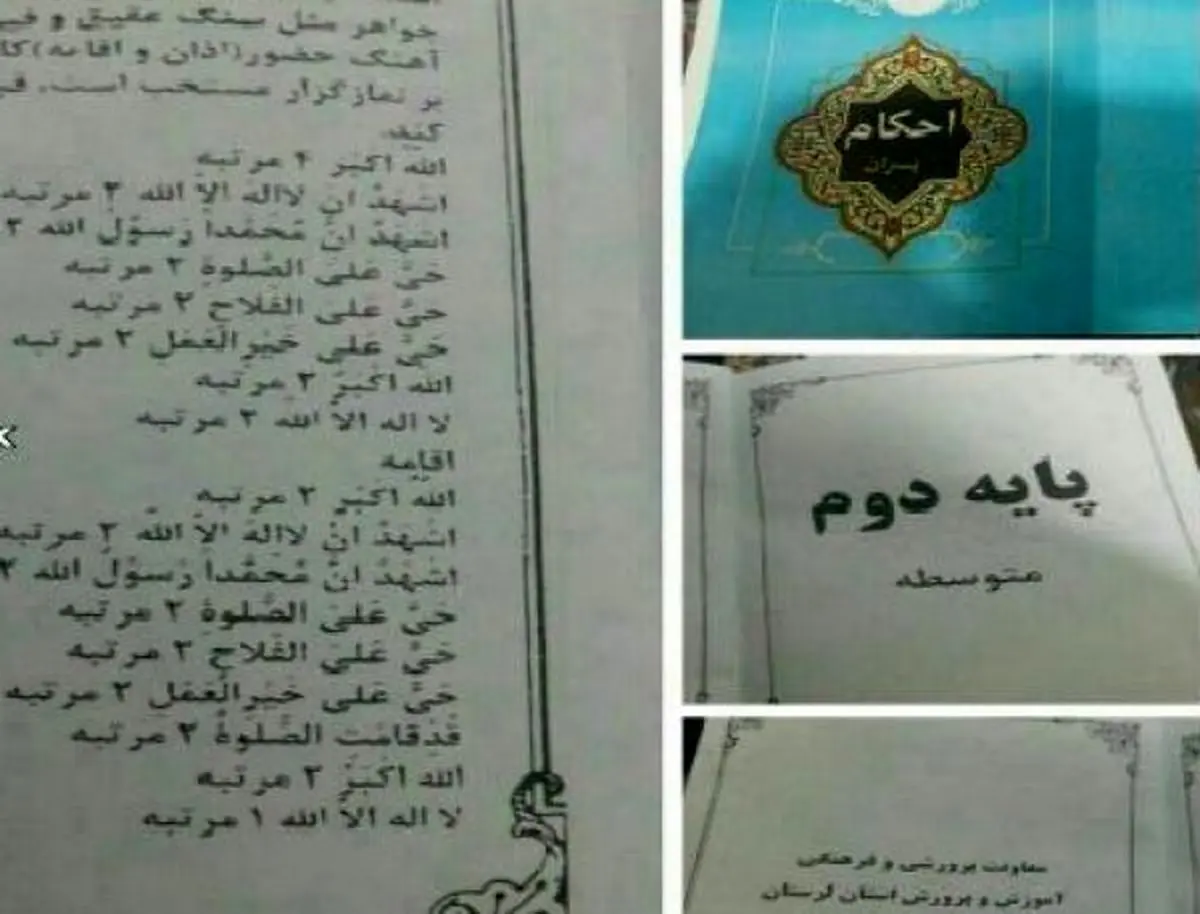 جواهر مثل سنگ عقیق و
آهنگ حضور(اذان و اقامه)
بر نمازگزار مستحب است.
کنید.
الله اکبر ۴ مرتبه
اشهدُ ان لااله الاّ الله ۲ مرتبه
اشهدُ انّ مُحَمّداً رَسوُلُ الله ۲
حَیَّ عَلیَ الصَّلوةِ ۲ مرتبه
حَیَّ علی الفَلاحِ ۲ مرتبه
حَیَّ عَلی خَیرِالعَمَلِ ۲ مرتبه
الله اکبرُ ۲ مرتبه
لا اله الاّ الله ۲ مرتبه
اقامه
الله اکبر ۲ مرتبه
اشهدُ انْ لااله الاّ الله ۲ مرتبه
اشهدُ انّ مُحَمَّداً رَسوُلُ الله ۲
حَیَّ عَلیَ الصَّلوةِ ۲ مرتبه
حَیَّ عَلیَ الفَلاحِ ۲ مرتبه
حَیَّ عَلی خَیرِالعَمَلِ ۲ مرتبه
قَدقامَتِ الصَّلوةُ ۲ مرتبه
الله اکبَرُ ۲ مرتبه
لا اله الاّ الله ۱ مرتبه
احکام
پسران
پایه دوم
متوسطه
معاونت پرورشی و فرهنگی
آموزش و پرورش استان لرستان